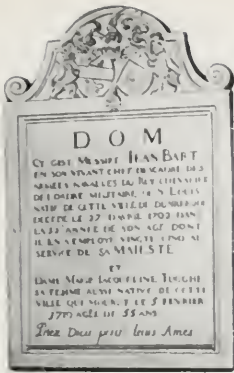 D O M
CY GIST MESSIRE JEAN BART
EN SON VIVANT CHEF D'ESCADRE DES
ARMÉES NAVALES DU ROY CHEVALIER
DE L'ORDRE MILITAIRE DE S LOUIS
NATIF DE CETTE VILLE DE DUNKERQUE
DECEDE LE 27 D'AVRIL 1702 DAN
LA 52 ANNEE DE SON AGE DONT
IL EN A EMPLOYE VINGT CINQ AU
SERVICE DE SA MAJESTE
ET
DAME MARIE JACQUELINE TUGGHE
SA FEMME AUSSI NATIVE DE CETTE
VILLE QUI MOURUT LE 5 FEVRIER
AGEE DE 55 ANS
Priez Dieu pour leurs Ames